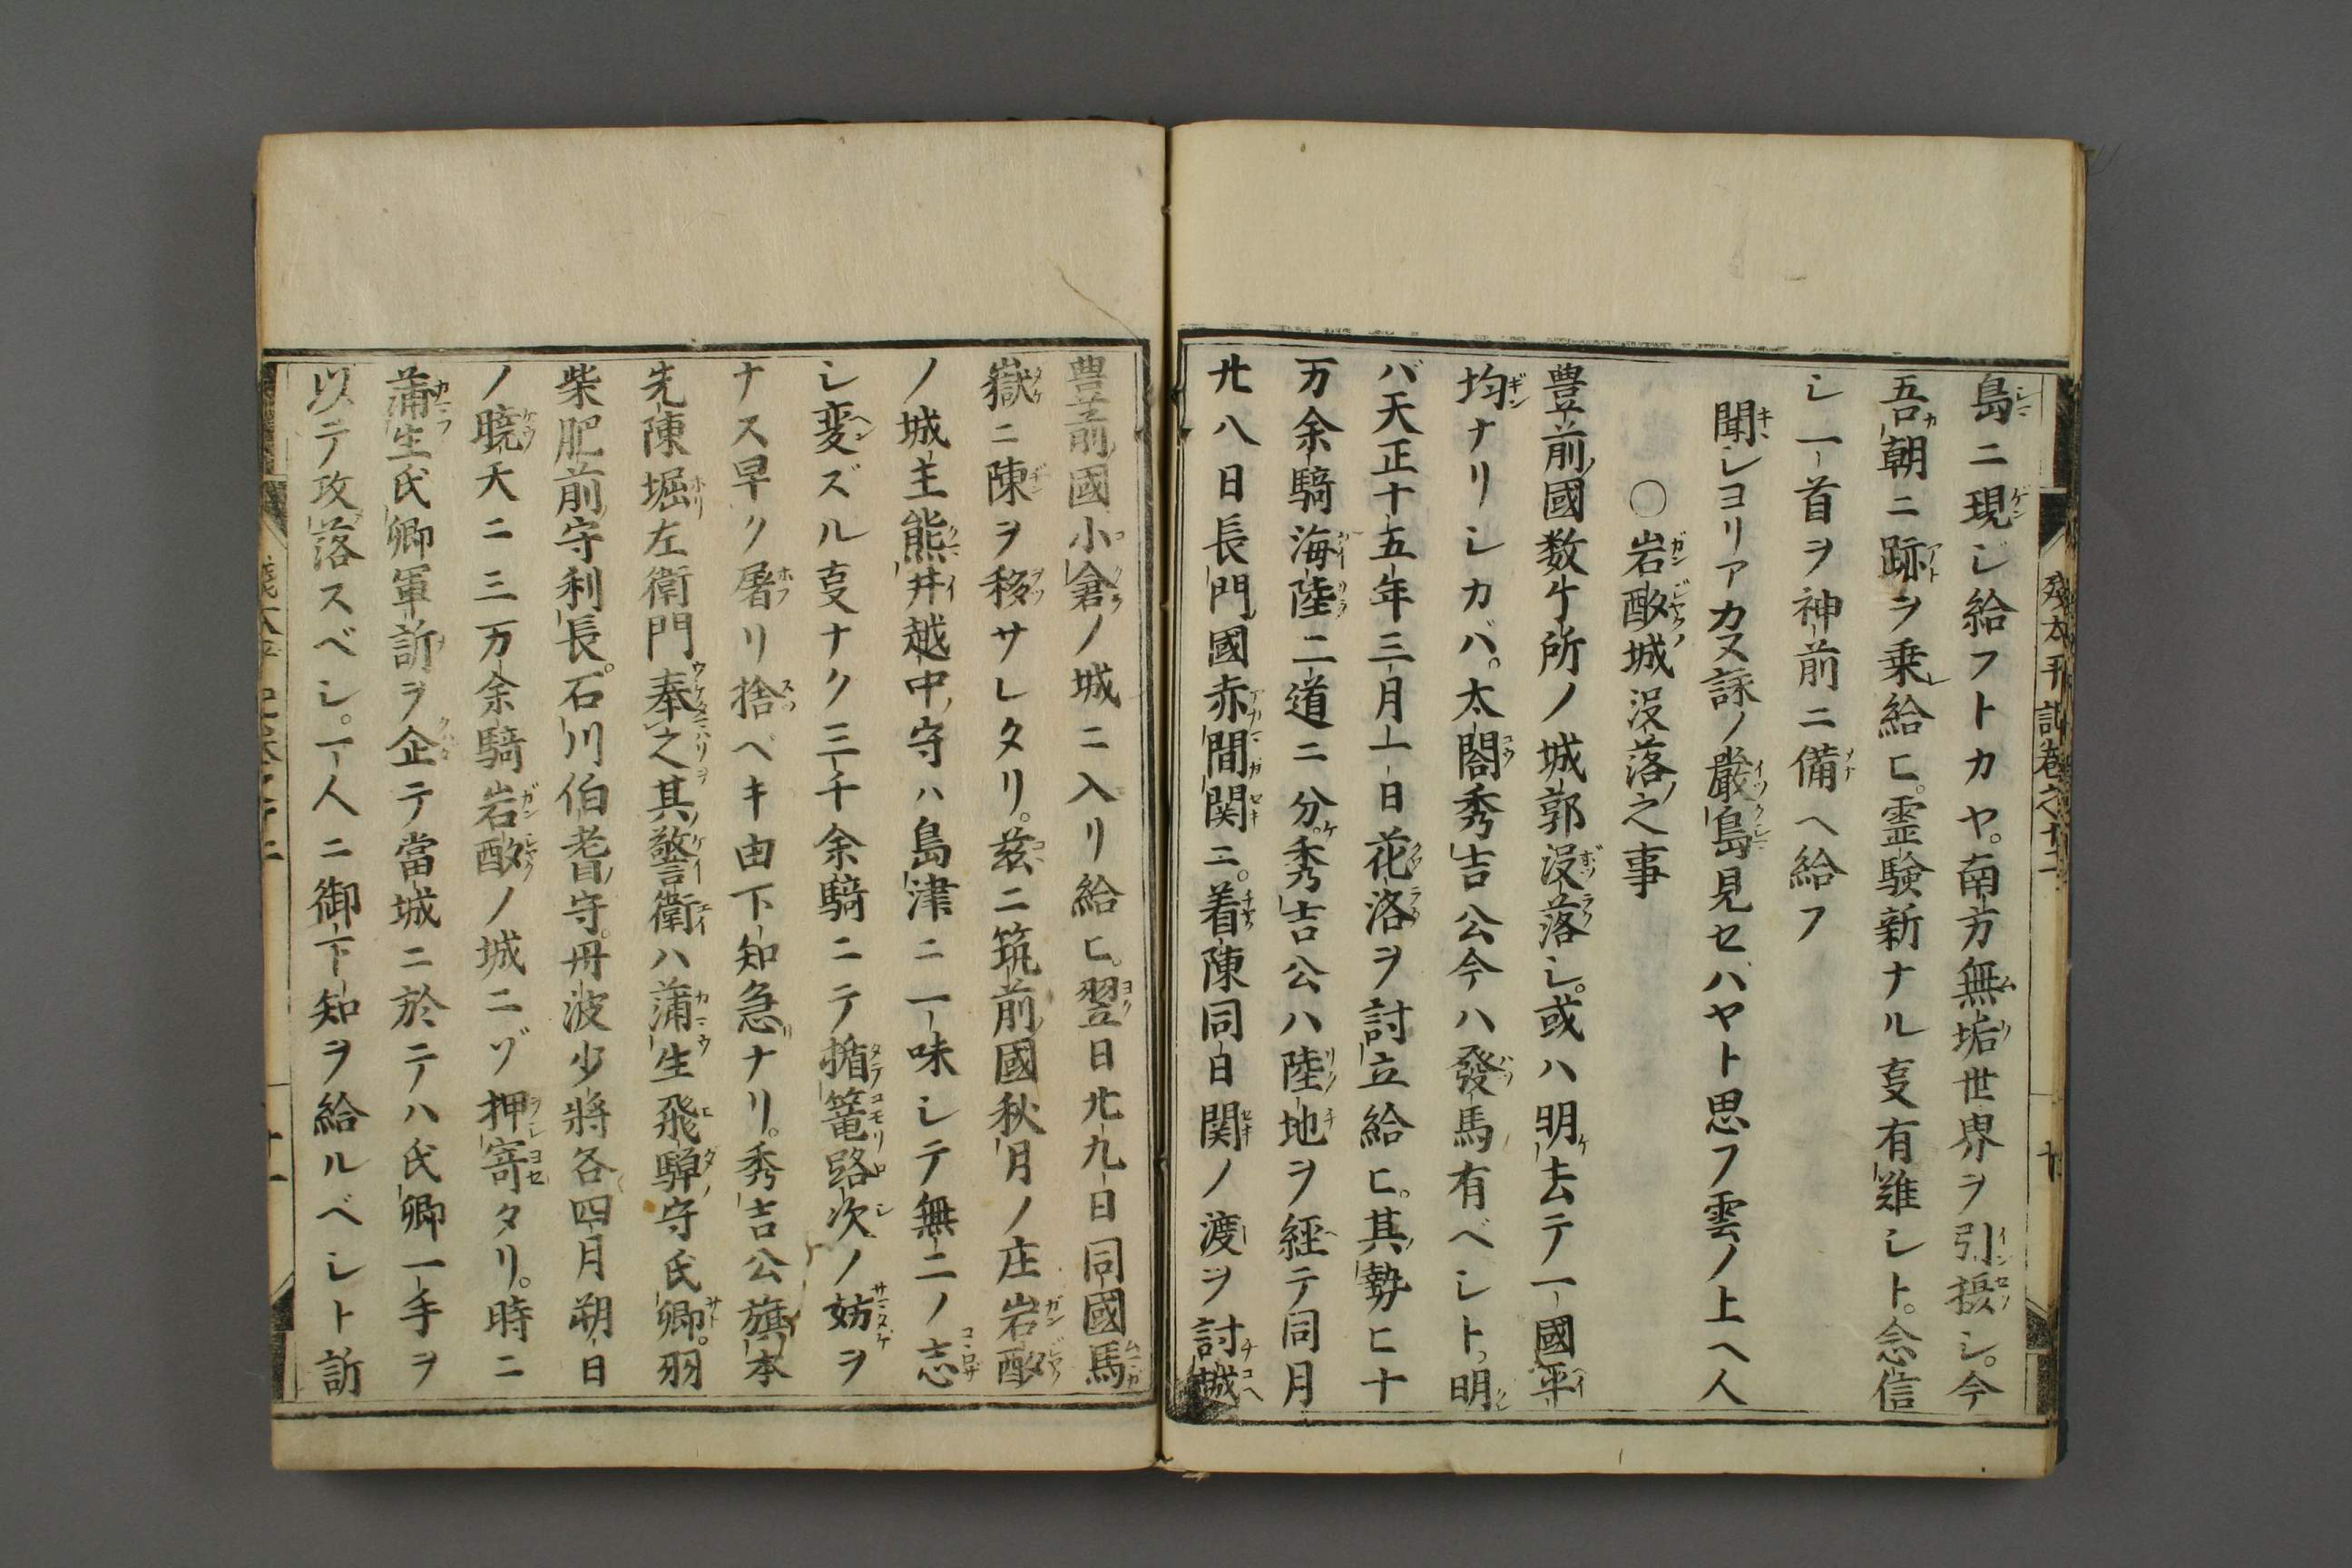 島ニ現ジ給フトカヤ。南方無垢世界ヲ引摂シ。今
吾朝ニ跡ヲ乗給ヒ。霊験新ナル㕝有難シト。念信
シ一首ヲ神前ニ備ヘ給フ
聞シヨリアカヌ詠ノ嚴島見セバヤト思フ雲ノ上ヘ人
〇岩酘城没落之事
豊前國数ケ所ノ城郭没落シ。或ハ明去テ一國平
均ナリシカバ。太閤秀吉公今ハ發馬有ベシト。明
バ天正十五年三月一日花洛ヲ討立給ヒ。其勢ヒ十
万余騎海陸二道ニ分。秀吉公ハ陸地ヲ経テ同月
廿八日長門國赤間関ニ。着陳同日関ノ渡ヲ討越
豊前國小倉ノ城ニ入リ給ヒ。翌日廿九日同國馬
嶽ニ陳ヲ移サレタリ。茲ニ筑前國秋月ノ庄岩酘
ノ城主熊井越中守ハ島津ニ一味シテ無二ノ志
シ変ズル㕝ナク三千余騎ニテ楯篭路次ノ妨ヲ
ナス早ク屠リ捨ベキ由下知急ナリ。秀吉公旗本
先陳堀左衛門奉之其警衛ハ蒲生飛騨守氏卿。羽
柴肥前守利長。石川伯耆守。丹波少將各四月朔日
ノ暁天ニ三万余騎岩酘ノ城ニゾ押寄タリ。時ニ
蒲生氏卿軍訴ヲ企テ當城ニ於テハ氏卿一手ヲ
以テ攻落スベシ。一人ニ御下知ヲ給ルベシト訴